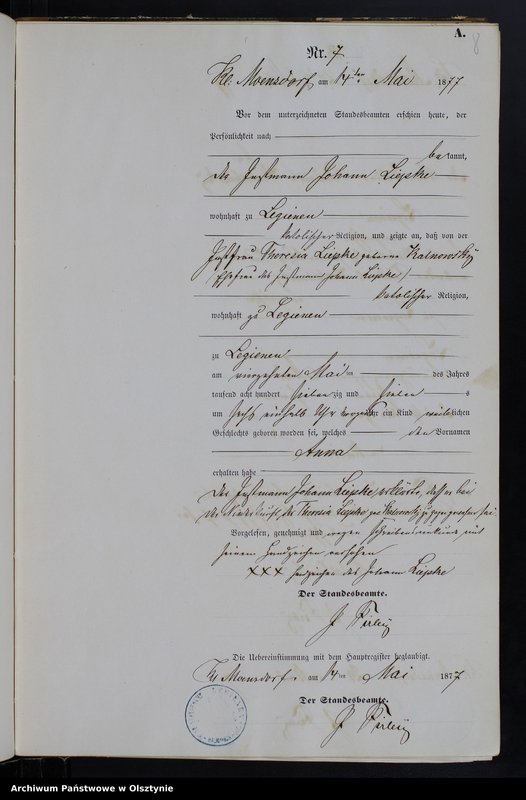 A.
8
Nr. 7
Kl. Moensdorf am 14ten Mai 1877
Vor dem unterzeichneten Standesbeamten erschien heute, der
Persönlichkeit nach
bekannt,
der Instmann Johann Liepke
wohnhaft zu Legienen
katolischer Religion, und zeigte an, daß von der
Instfrau Theresia Liepke geborne Kalnowsky
Ehefrau des Instmann Johann Liepke
katolischer Religion,
wohnhaft zu Legienen
zu Legienen
am vierzehnten Mai des Jahres
tausend acht hundert siebenzig und sieben
um sechs einhalb Uhr ein Kind weiblichen
Geschlechts geboren worden sei, welches den Vornamen
Anna
erhalten habe
Der Instmann Johann Liepke, erklärte, daß er bei
der Niederkunft der Theresia Liepke zugegen gewesen sei
Vorgelesen, genehmigt und wegen Schreibensunkunde mit
seinem Handzeichen versehen
××× Handzeichen des Johann Liepke
Der Standesbeamte.
Die Uebereinstimmung mit dem Hauptregister beglaubigt.
Kl. Moensdorf, am 14ten Mai 1877
Der Standesbeamte.
Archiwum Państwowe w Olsztynie